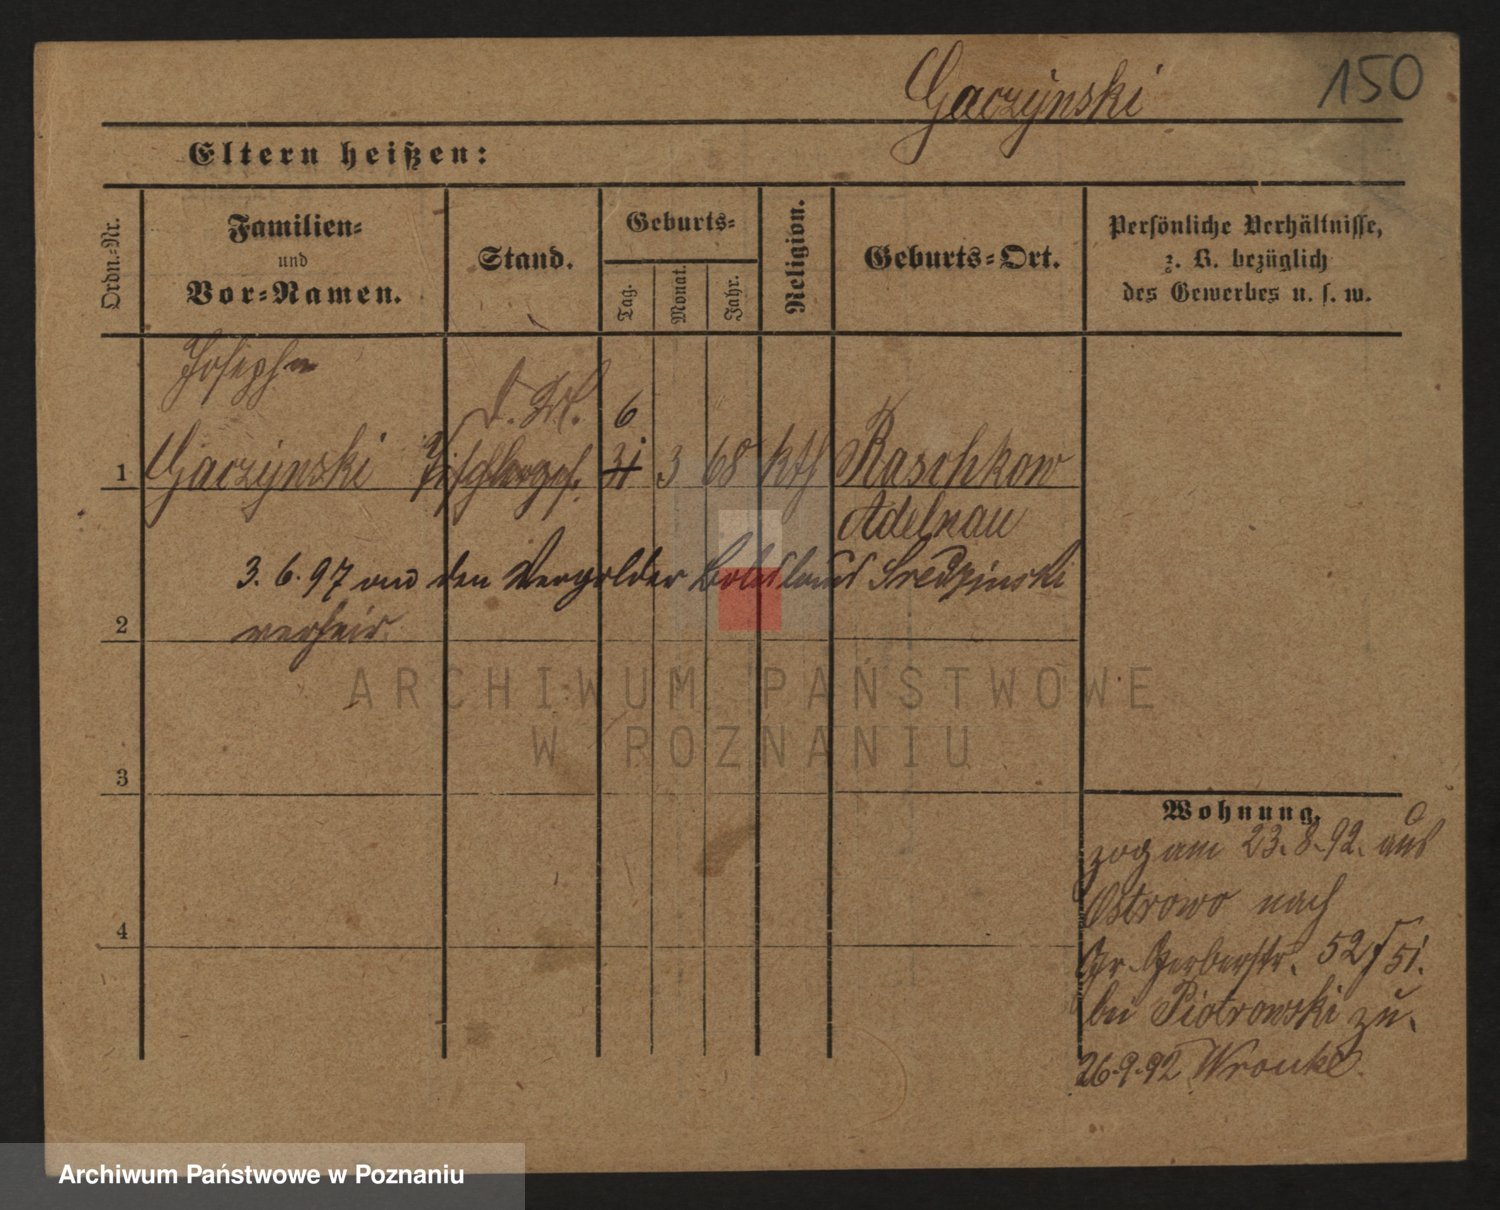 Gaczÿnski 150
Eltern heißen:
Ordn.-Nr.
Familien-
und
Vor-Namen.
Stand.
Geburts-
Tag.
Monat.
Jahr.
Religion.
Geburts-Ort.
Persönliche Verhältnisse,
z. B. bezüglich
des Gewerbes u. s. w.
Josepha
6
1 Gaczÿnski Tischlerges. 31 3 68 kth Raschkow
Adelnau
3. 6. 97 an den Vergolder Boleslaus Sredzinski
2 verheir.
ARCHIWUM PAŃSTWOWE
W POZNANIU
3
4
Wohnung.
zog am 23. 8. 92. aus
Ostrowo nach
Gr. Gerberstr. 52/51.
bei Piotrowski zu.
26.9.92 Wronke.
Archiwum Państwowe w Poznaniu